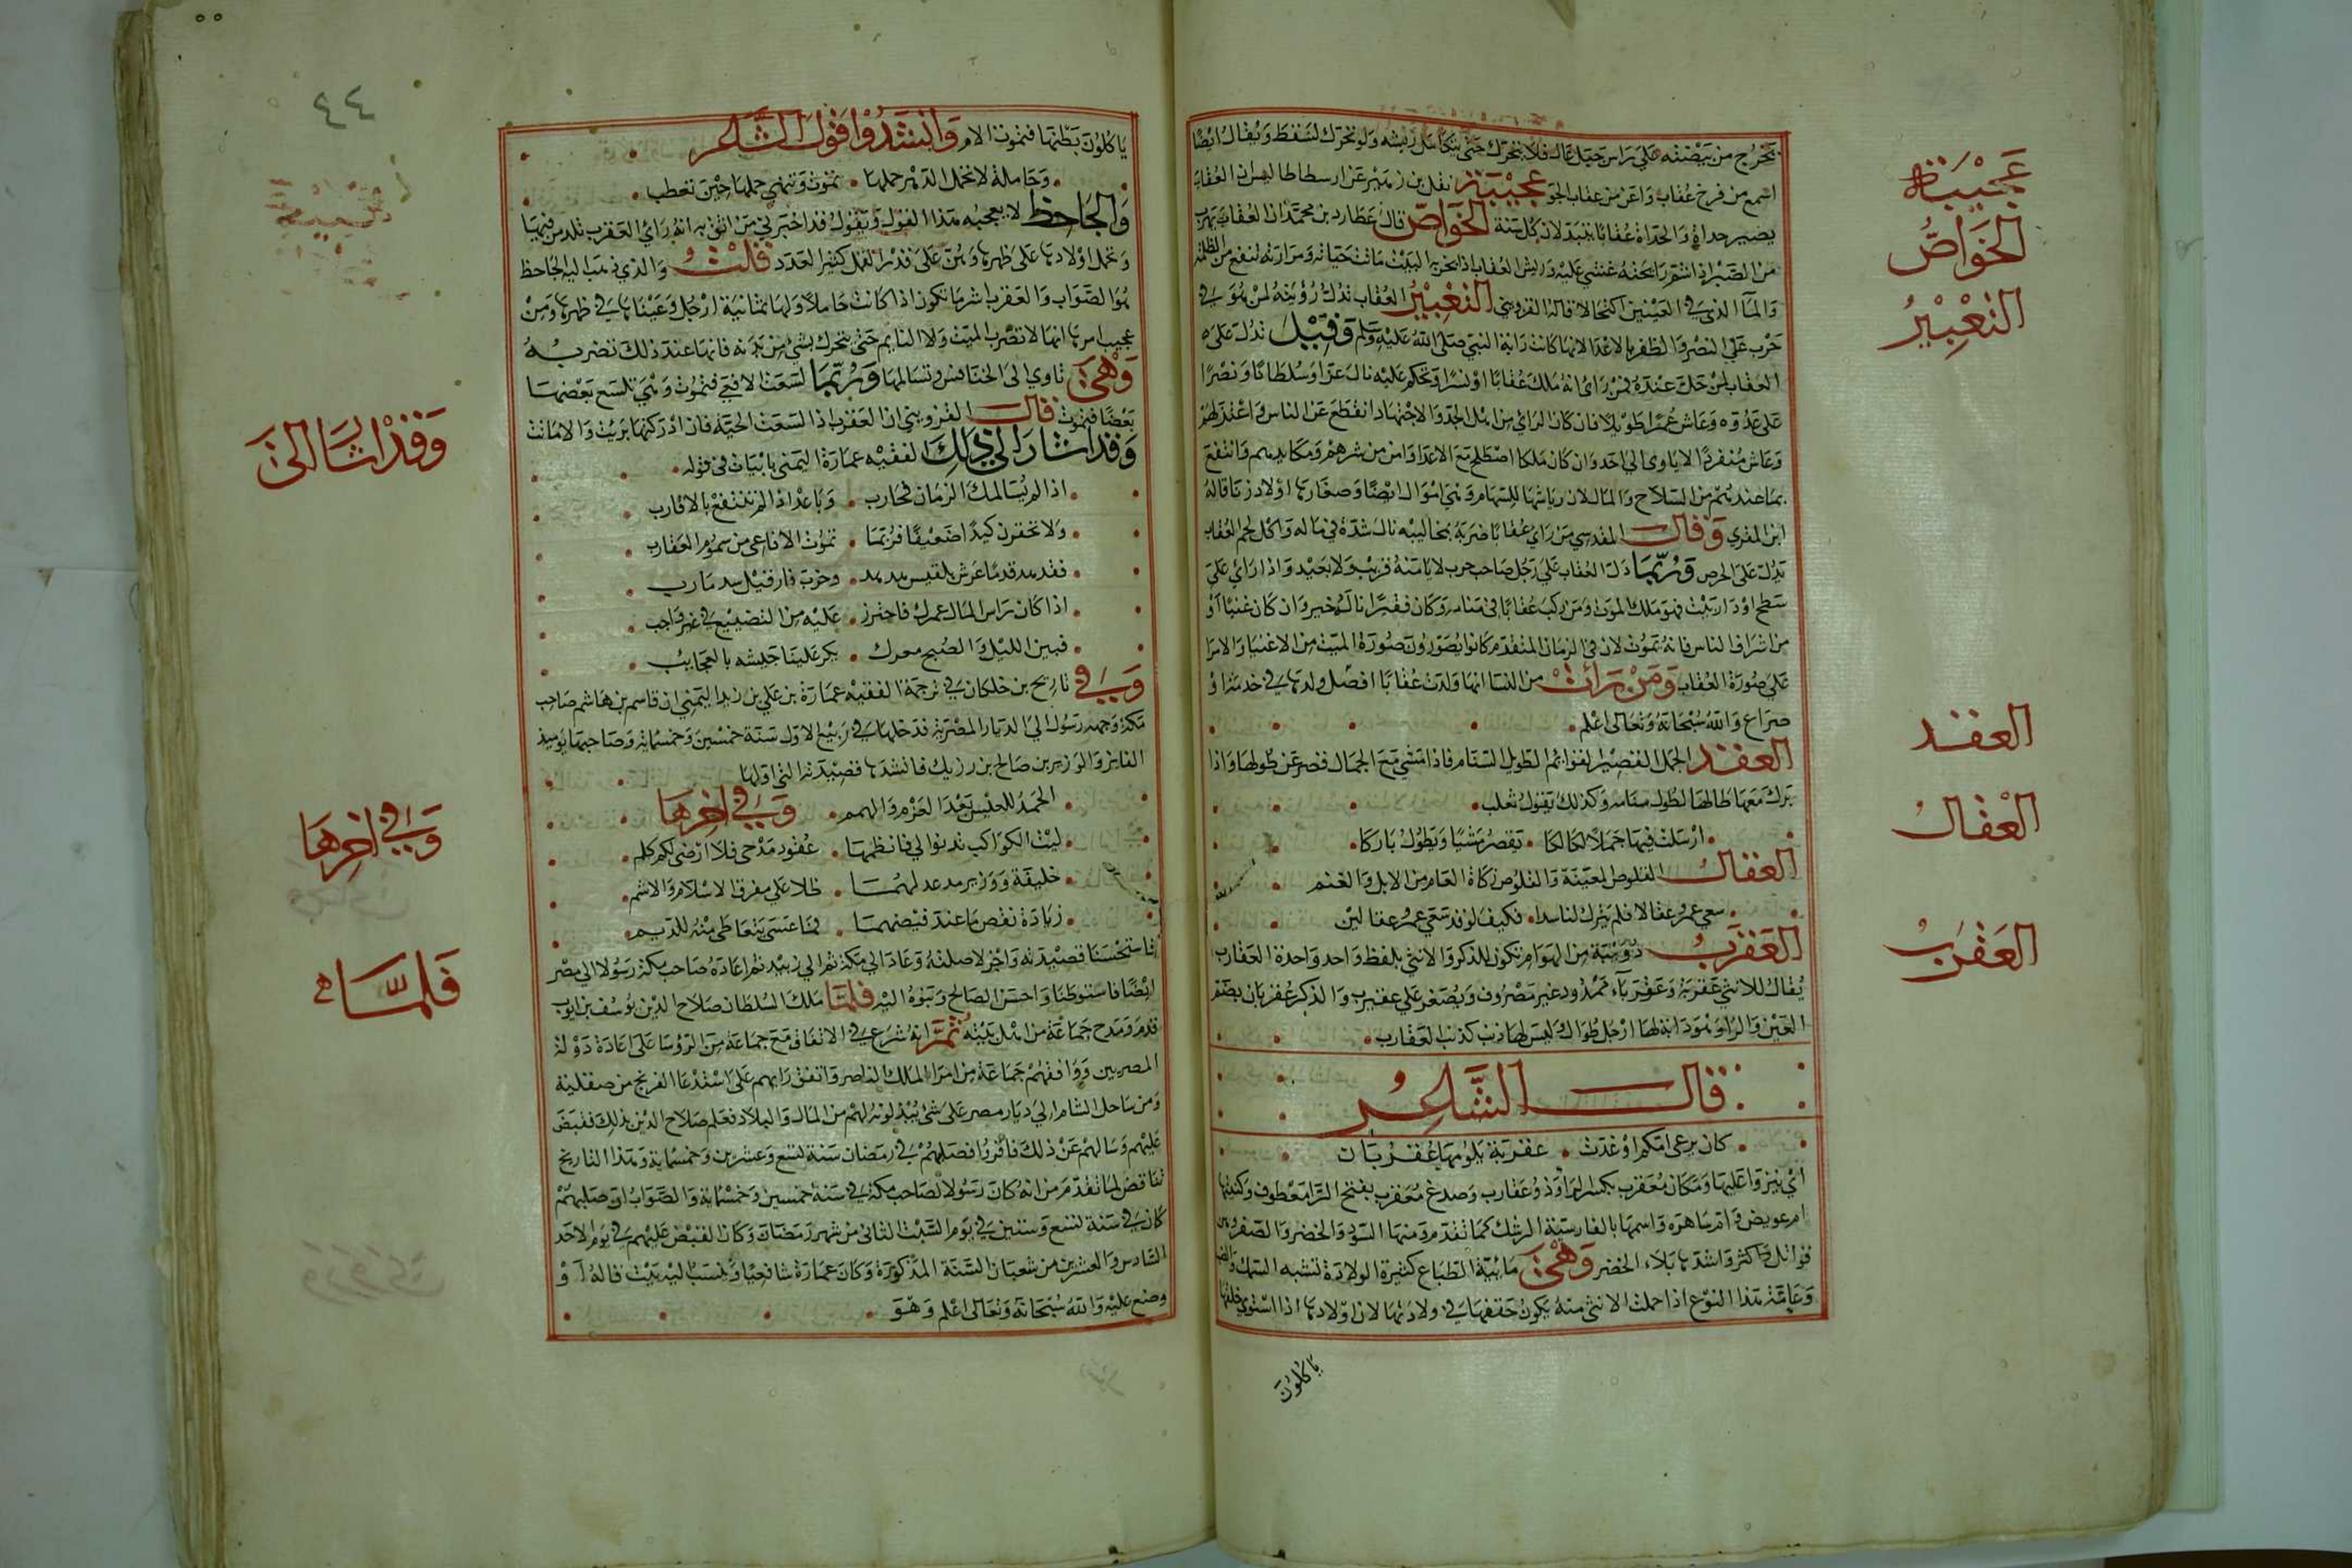 يخرج من بيضته على راس جبل عال فلا يتحرك حتى يتكامل ريشه ولو تحرك لسقط ويقال ايضا
اسمع من فرخ عقاب واعز من عقاب الجو عجيبة نقل بن زهير عن ارسطاطاليس ان العقاب
يصير حداة والحداة عقابا يتبدلان كل سنة الخواص قال عطارد بن محمد ان العقاب يهرب
من الصبر اذا شم رايحته غشي عليه وريش العقاب اذا بخر به البيت ماتت حياته ومرارته تنفع من الظلمة
والماء الذي في العينين اكتحالا قاله القزويني التعبير العقاب تدل رؤيته لمن هو في
حرب على النصر والظفر بالاعدا لانها كانت راية النبي صلى الله عليه وسلم وقيل تدل على
العقاب لمن حل عنده فمن راى انه ملك عقابا او نسرا وتحكم عليه نال عزا وسلطانا ونصرا
على عدوه وعاش عمرا طويلا فان كان الراي من اهل الجد والاجتهاد انقطع عن الناس واعتزلهم
وعاش منفردا لا ياوى الى احد وان كان ملكا اصطلح مع الاعدا وامن من شرهم ومكايدهم وانتفع
بما عندهم من السلاح والمال لان رياشها للسهام وهي اموال ايضا وصغارها اولاد زنا قاله
ابن المقري وقال المقدسي من راى عقابا ضربه بمخاليبه نال شدة في ماله واكل لحم العقاب
يدل على الحرص وربما دل العقاب على رجل صاحب حرب لا يامنه قريب ولا بعيد واذا راى على
سطح او دار بيت فهو ملك الموت ومن ركب عقابا في منامه وكان فقيرا نال خير وان كان غنيا او
من اشراف الناس فانه يموت لان في الزمان المتقدم كانوا يصورون صورة الميت من الاغنيا والامرا
على صورة العقاب ومن رات من النسا انها ولدت عقابا افضل ولدها في خدمة او
صراع والله سبحانه وتعالى اعلم
العقد الجمل القصير القوائم الطويل السنام فاذا مشى مع الجمال قصر عن طولها واذا
برك معها طالها لطول سنامه وكذلك يقول ثعلب
ارسلت فيها جملا لكالكا يقصر مشيا ويطول باركا
العقال القلوص المعينة والقلوص زكاة العام من الابل والغنم
سعى عمرو عقالا فلم يترك لنا سبدا فكيف لو قد سعى عمرو عقالين
العقرب دويبة من الهوام تكون للذكر والانثى بلفظ واحد واحدة العقارب
يقال للانثى عقربة وعقرباء ممدود غير مصروف ويصغر على عقيرب والذكر عقربان بضم
العين والراء وهو دابة لها ارجل طوال وليس لها ذنب كذنب العقارب
قال الشاعر
كان مرعى امكم اذ غدت عقربة يكومها عقربان
اي ينزوا عليها ومكان معقرب بكسر الراء اي ذو عقارب وصدغ معقرب بفتح الراء معطوف وكنيتها
ام عويض وام ساهره واسمها بالفارسية الرشك كما تقدم ومنها السود والخضر والصفر وهن
قواتل واكثر واشدها بلاء الخضر وهي مائية الطباع كثيرة الولادة تشبه السمك والضب
وعامة هذا النوع اذا حملت الانثى منه يكون حتفها في ولادتها لان اولادها اذا استوى خلقها
ياكلون
عجيبة
الخواص
التعبير
العقد
العقال
العقرب
٤٤
ياكلون بطنها فتموت الام وانشدوا قول الشاعر
وحاملة لا تحمل الدهر حملها تموت وتنمي حملها حين تعطب
والجاحظ لا يعجبه هذا القول ويقول قد اخبرني من اثق به انه راى العقرب تلد من فيها
وتحمل اولادها على ظهرها وهن على قدر القمل كثير العدد قلت والذي ذهب اليه الجاحظ
هو الصواب والعقرب اشر ما تكون اذا كانت حاملا ولها ثمانية ارجل وعيناها في ظهرها ومن
عجيب امرها انها لا تضرب الميت ولا النايم حتى يتحرك بشئ من بدنه فانها عند ذلك تضربه
وهي تاوي الى الخنافس وتسالمها وربما لسعت الافعي فتموت وهي تلسع بعضها
بعضا فتموت قال القزويني ان العقرب اذا لسعت الحية فان ادركتها بريت والا ماتت
وقد اشار الى ذلك الفقيه عمارة اليمني بابيات في قوله
اذا لم يسالمك الزمان فحارب وباعد اذا لم تنتفع بالاقارب
ولا تحقرن كيدا ضعيفا فربما تموت الافاعي من سموم العقارب
فقد هد قدما عرش بلقيس هدهد وخرب فار قبل سد مارب
اذا كان راس المال عمرك فاحترز عليه من التضييع في غير واجب
فبين الليل والصبح معرك يكر علينا جيشه بالعجايب
وفي تاريخ بن خلكان في ترجمة الفقيه عمارة بن علي بن زيد اليمني ان قاسم بن هاشم صاحب
مكة وجهه رسولا الى الديار المصرية فدخلها في ربيع الاول سنة خمسين وخمسماية وصاحبها يوميذ
الفايز والوزير بن صالح بن رزيك فانشدها قصيدته التي اولها
الحمد للعيس بعد العزم والهمم وفي اخرها
ليت الكواكب تدنوا لي فانظمها عقود مدحي فلا ارضى لكم كلم
خليفة ووزير مد عدلهما ظلا على مفرق الاسلام والاشم
زيادة نقص ما عند فيضهما فما عسى يتعاطى منه الديم
فاستحسنا قصيدته واجزلا صلته وعاد الى مكة ثم الى زبيد ثم اعاده صاحب مكة رسولا الى مصر
ايضا فاستوطنها واحسن الصالح وبنوه اليه فلما ملك السلطان صلاح الدين يوسف بن ايوب
قدم ومدح جماعة من اهل بيته ثم انه شرع في الاتفاق مع جماعة من الرؤسا على اعادة دولة
المصريين ووافقهم جماعة من امرا الملك الناصر واتفق رايهم على استدعا الفرنج من صقلية
ومن ساحل الشام الى ديار مصر على شئ يبذلونه لهم من المال والبلاد فعلم صلاح الدين بذلك فقبض
عليهم وسالهم عن ذلك فاقروا فصلبهم في رمضان سنة تسع وعشرين وخمسماية وهذا التاريخ
تناقض لما تقدم من انه كان رسولا لصاحب مكة في سنة خمسين وخمسماية والصواب ان صلبهم
كان في سنة تسع وستين في يوم السبت الثاني من شهر رمضان وكان القبض عليهم في يوم الاحد
السادس والعشرين من شعبان السنة المذكورة وكان عمارة شافعيا وينسب اليه بيت قاله او
وضع عليه والله سبحانه وتعالى اعلم وهو
وقد اشار الى
وفي اخرها
فلما